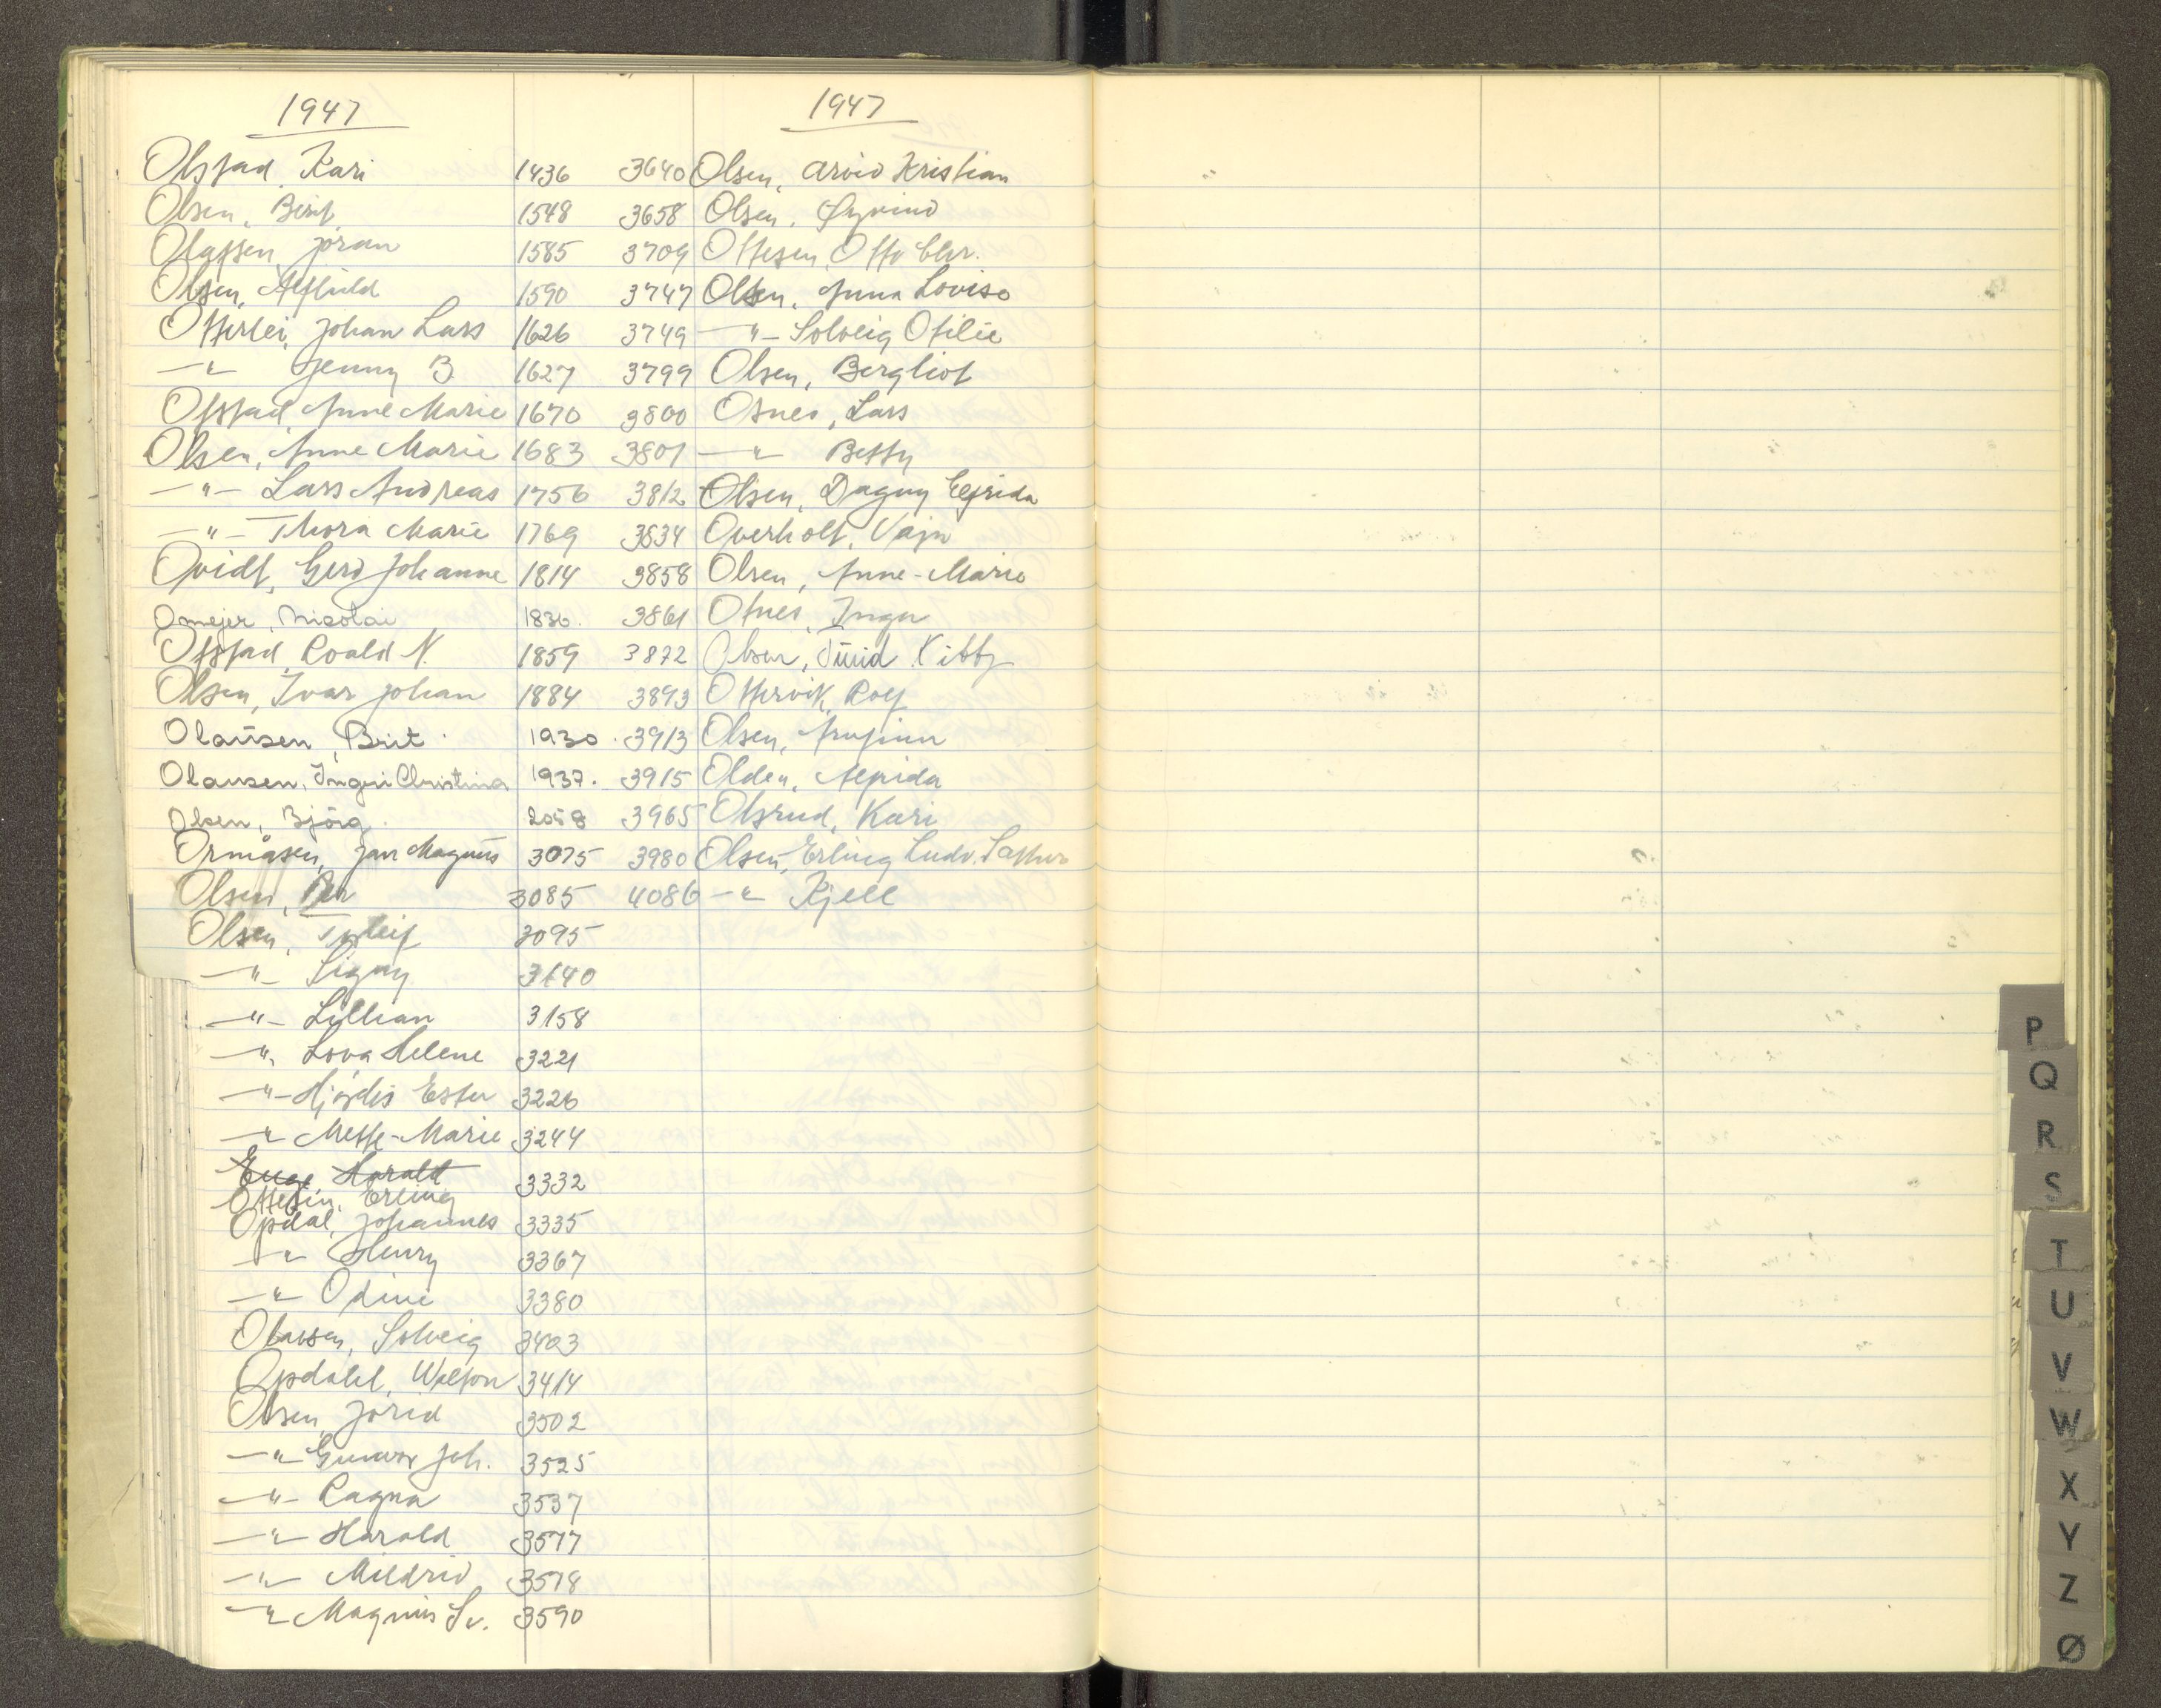 1947
Olstad, Kari 1436
Olsen, Berit 1548
Olafsen, Jöran 1585
Olsen, Alfhild 1590
Otterlei, Johan Lars 1626
—"— Jenny B. 1627
Ofstad, Anne Marie 1670
Olsen, Anne Marie 1683
—"— Lars Andreas 1756
—"— Thora Marie 1769
Opidt, Gerd Johanne 1814
Omejer, Nicolai 1836.
Ofstad, Roald N. 1859
Olsen, Ivar Johan 1884
Olausen, Brit 1930.
Olausen, Ingeri Christina 1937.
Olsen, Bjørg. 2058
Ormåsen, Jan Magnus 3075
Olsen, Per 3085
Olsen, 3095
—"— Signy 3140
—"— Lillian 3158
—"— Lova Helene 3221
—"— Hjørdis Ester 3226
—"— Mette-Marie 3244
Harald 3332
Ottesen, Erling
Opdal, Johannes 3335
—"— Henry 3367
—"— Odine 3380
Olavsen, Solveig 3403
Opdahl, 3414
Olsen, Jorid 3502
—"— Gunvor Joh. 3525
—"— Ragna 3537
—"— Harald 3577
—"— Mildrid 3578
—"— Magnus Sv. 3590
1947
3640 Olsen, Arvid Kristian
3658 Olsen, Øyvind
3709 Ottesen, Otto Chr.
3747 Olsen, Anna Lovise
3749 —"— Solveig Otilie
3799 Olsen, Bergliot
3800 Osnes, Lars
3801 —"— Betty
3812 Olsen, Dagny Elfrida
3834 Overholt, Vajn
3858 Olsen, Anne-Marie
3861 Otnes, Inga
3872 Olsen, Turid Kibby
3893 Ottervik, Rolf
3913 Olsen, Arnfinn
3915 Olden, Alfrida
3965 Olsrud, Kari
3980 Olsen, Erling Ludv.
4086 —"— Kjell
P
Q
R
S
T
U
V
W
X
Y
Z
Ø